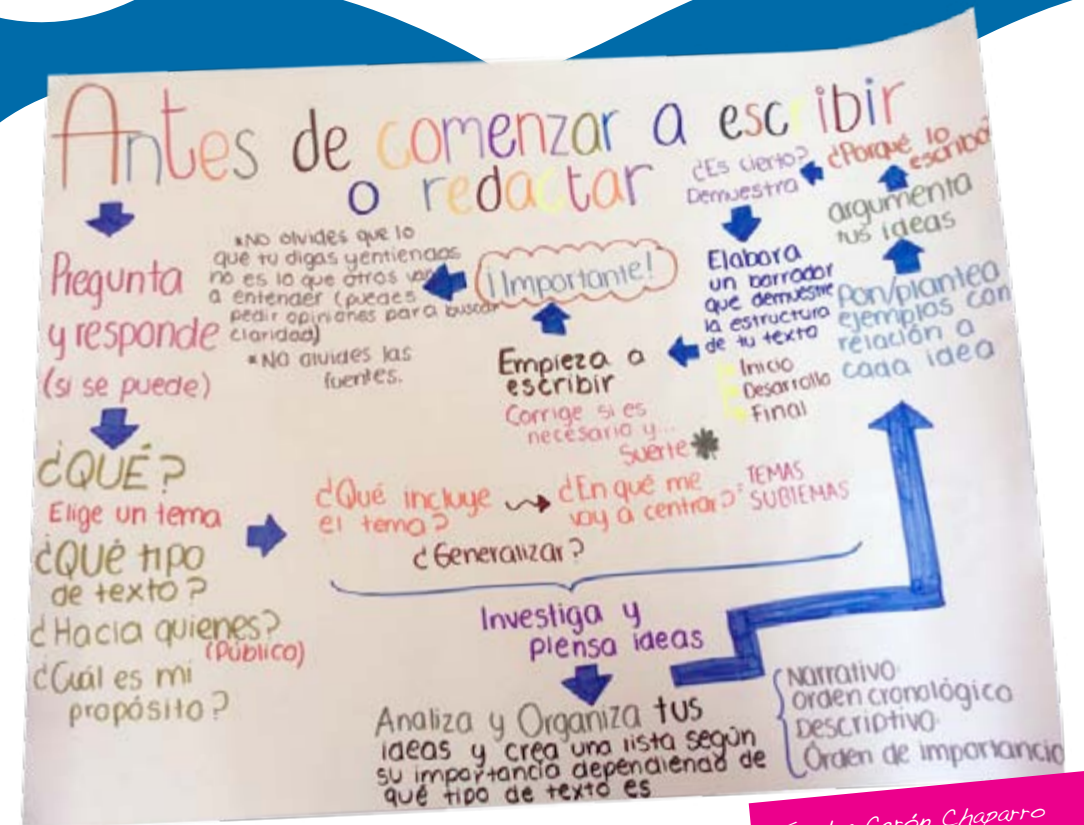 Antes de comenzar a escribir
o redactar
Pregunta
y responde
(si se puede)
¿QUÉ?
Elige un tema
¿QUÉ tipo
de texto?
¿Hacia quienes?
(Público)
¿Cuál es mi
propósito?
¿Qué incluye
el tema?
¿En qué me
voy a centrar?
TEMAS
SUBTEMAS
¿Generalizar?
Investiga y
piensa ideas
Analiza y Organiza tus
ideas y crea una lista según
su importancia dependiendo de
qué tipo de texto es
Narrativo
Orden cronológico
Descriptivo
Órden de importancia
Pon/plantea
ejemplos con
relación a
cada idea
argumenta
tus ideas
¿Porqué lo
escribo?
¿Es cierto?
Demuestra
Elabora
un borrador
que demuestre
la estructura
de tu texto
Inicio
Desarrollo
Final
Empieza a
escribir
Corrige si es
necesario y...
Suerte
¡Importante!
*NO olvides que lo
que tu digas y entiendas
no es lo que otros van
a entender (puedes
pedir opiniones para buscar
claridad)
*NO olvides las
fuentes.
Garón Chaparro